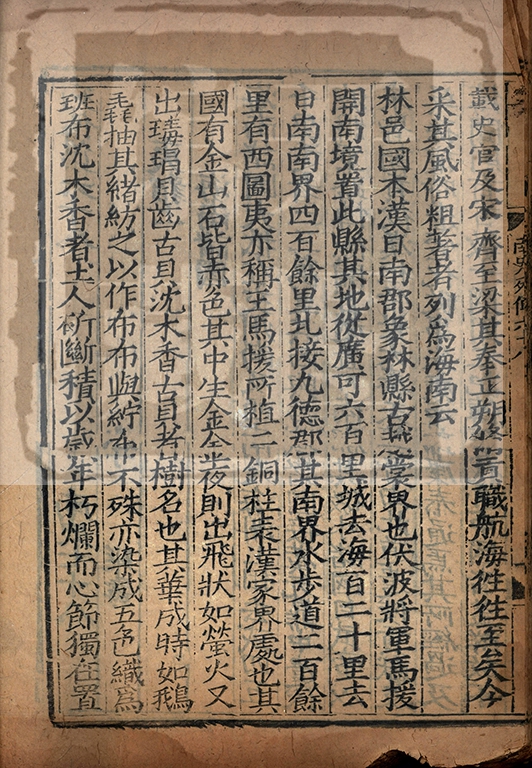 載史官及宋齊至梁其奉正朔修貢職航海往往至矣今
采其風俗粗著者列爲海南云
林邑國本漢日南郡象林縣古越裳界也伏波將軍馬援
開南境置此縣其地從廣可六百里城去海百二十里去
日南南界四百餘里北接九德郡其南界水步道二百餘
里有西圖夷亦稱王馬援所植二銅柱表漢家界處也其
國有金山石皆赤色其中生金金夜則出飛狀如螢火又
出瑇瑁貝齒古貝沈木香古貝者樹名也其華成時如鵝
毳抽其緒紡之以作布布與紵布不殊亦染成五色織爲
班布沈木香者土人斫斷積以歲年朽爛而心節獨在置